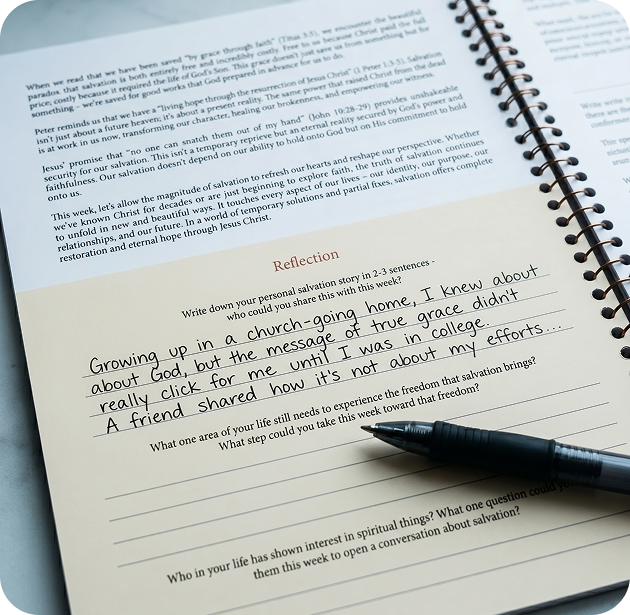 When we read that we have been saved "by grace through faith" (Titus 3:5), we encounter the beautiful
paradox that salvation is both entirely free and incredibly costly. Free to us because Christ paid the full
price; costly because it required the life of God's Son. This grace doesn't just save us from something but for
something – we're saved for good works that God prepared in advance for us to do.
Peter reminds us that we have a "living hope through the resurrection of Jesus Christ" (1 Peter 1:3-5). Salvation
isn't just about a future heaven; it's about a present reality. The same power that raised Christ from the dead
is at work in us now, transforming our character, healing our brokenness, and empowering our witness.
Jesus' promise that "no one can snatch them out of my hand" (John 10:28-29) provides unshakeable
security for our salvation. This isn't a temporary reprieve but an eternal reality secured by God's power and
faithfulness. Our salvation doesn't depend on our ability to hold onto God but on His commitment to hold
onto us.
This week, let's allow the magnitude of salvation to refresh our hearts and reshape our perspective. Whether
we've known Christ for decades or are just beginning to explore faith, the truth of salvation continues
to unfold in new and beautiful ways. It touches every aspect of our lives – our identity, our purpose, our
relationships, and our future. In a world of temporary solutions and partial fixes, salvation offers complete
restoration and eternal hope through Jesus Christ.
Reflection
Write down your personal salvation story in 2-3 sentences -
who could you share this with this week?
Growing up in a church-going home, I knew about
about God, but the message of true grace didn't
really click for me until I was in college.
A friend shared how it's not about my efforts...
What one area of your life still needs to experience the freedom that salvation brings?
What step could you take this week toward that freedom?
Who in your life has shown interest in spiritual things? What one question could you
them this week to open a conversation about salvation?